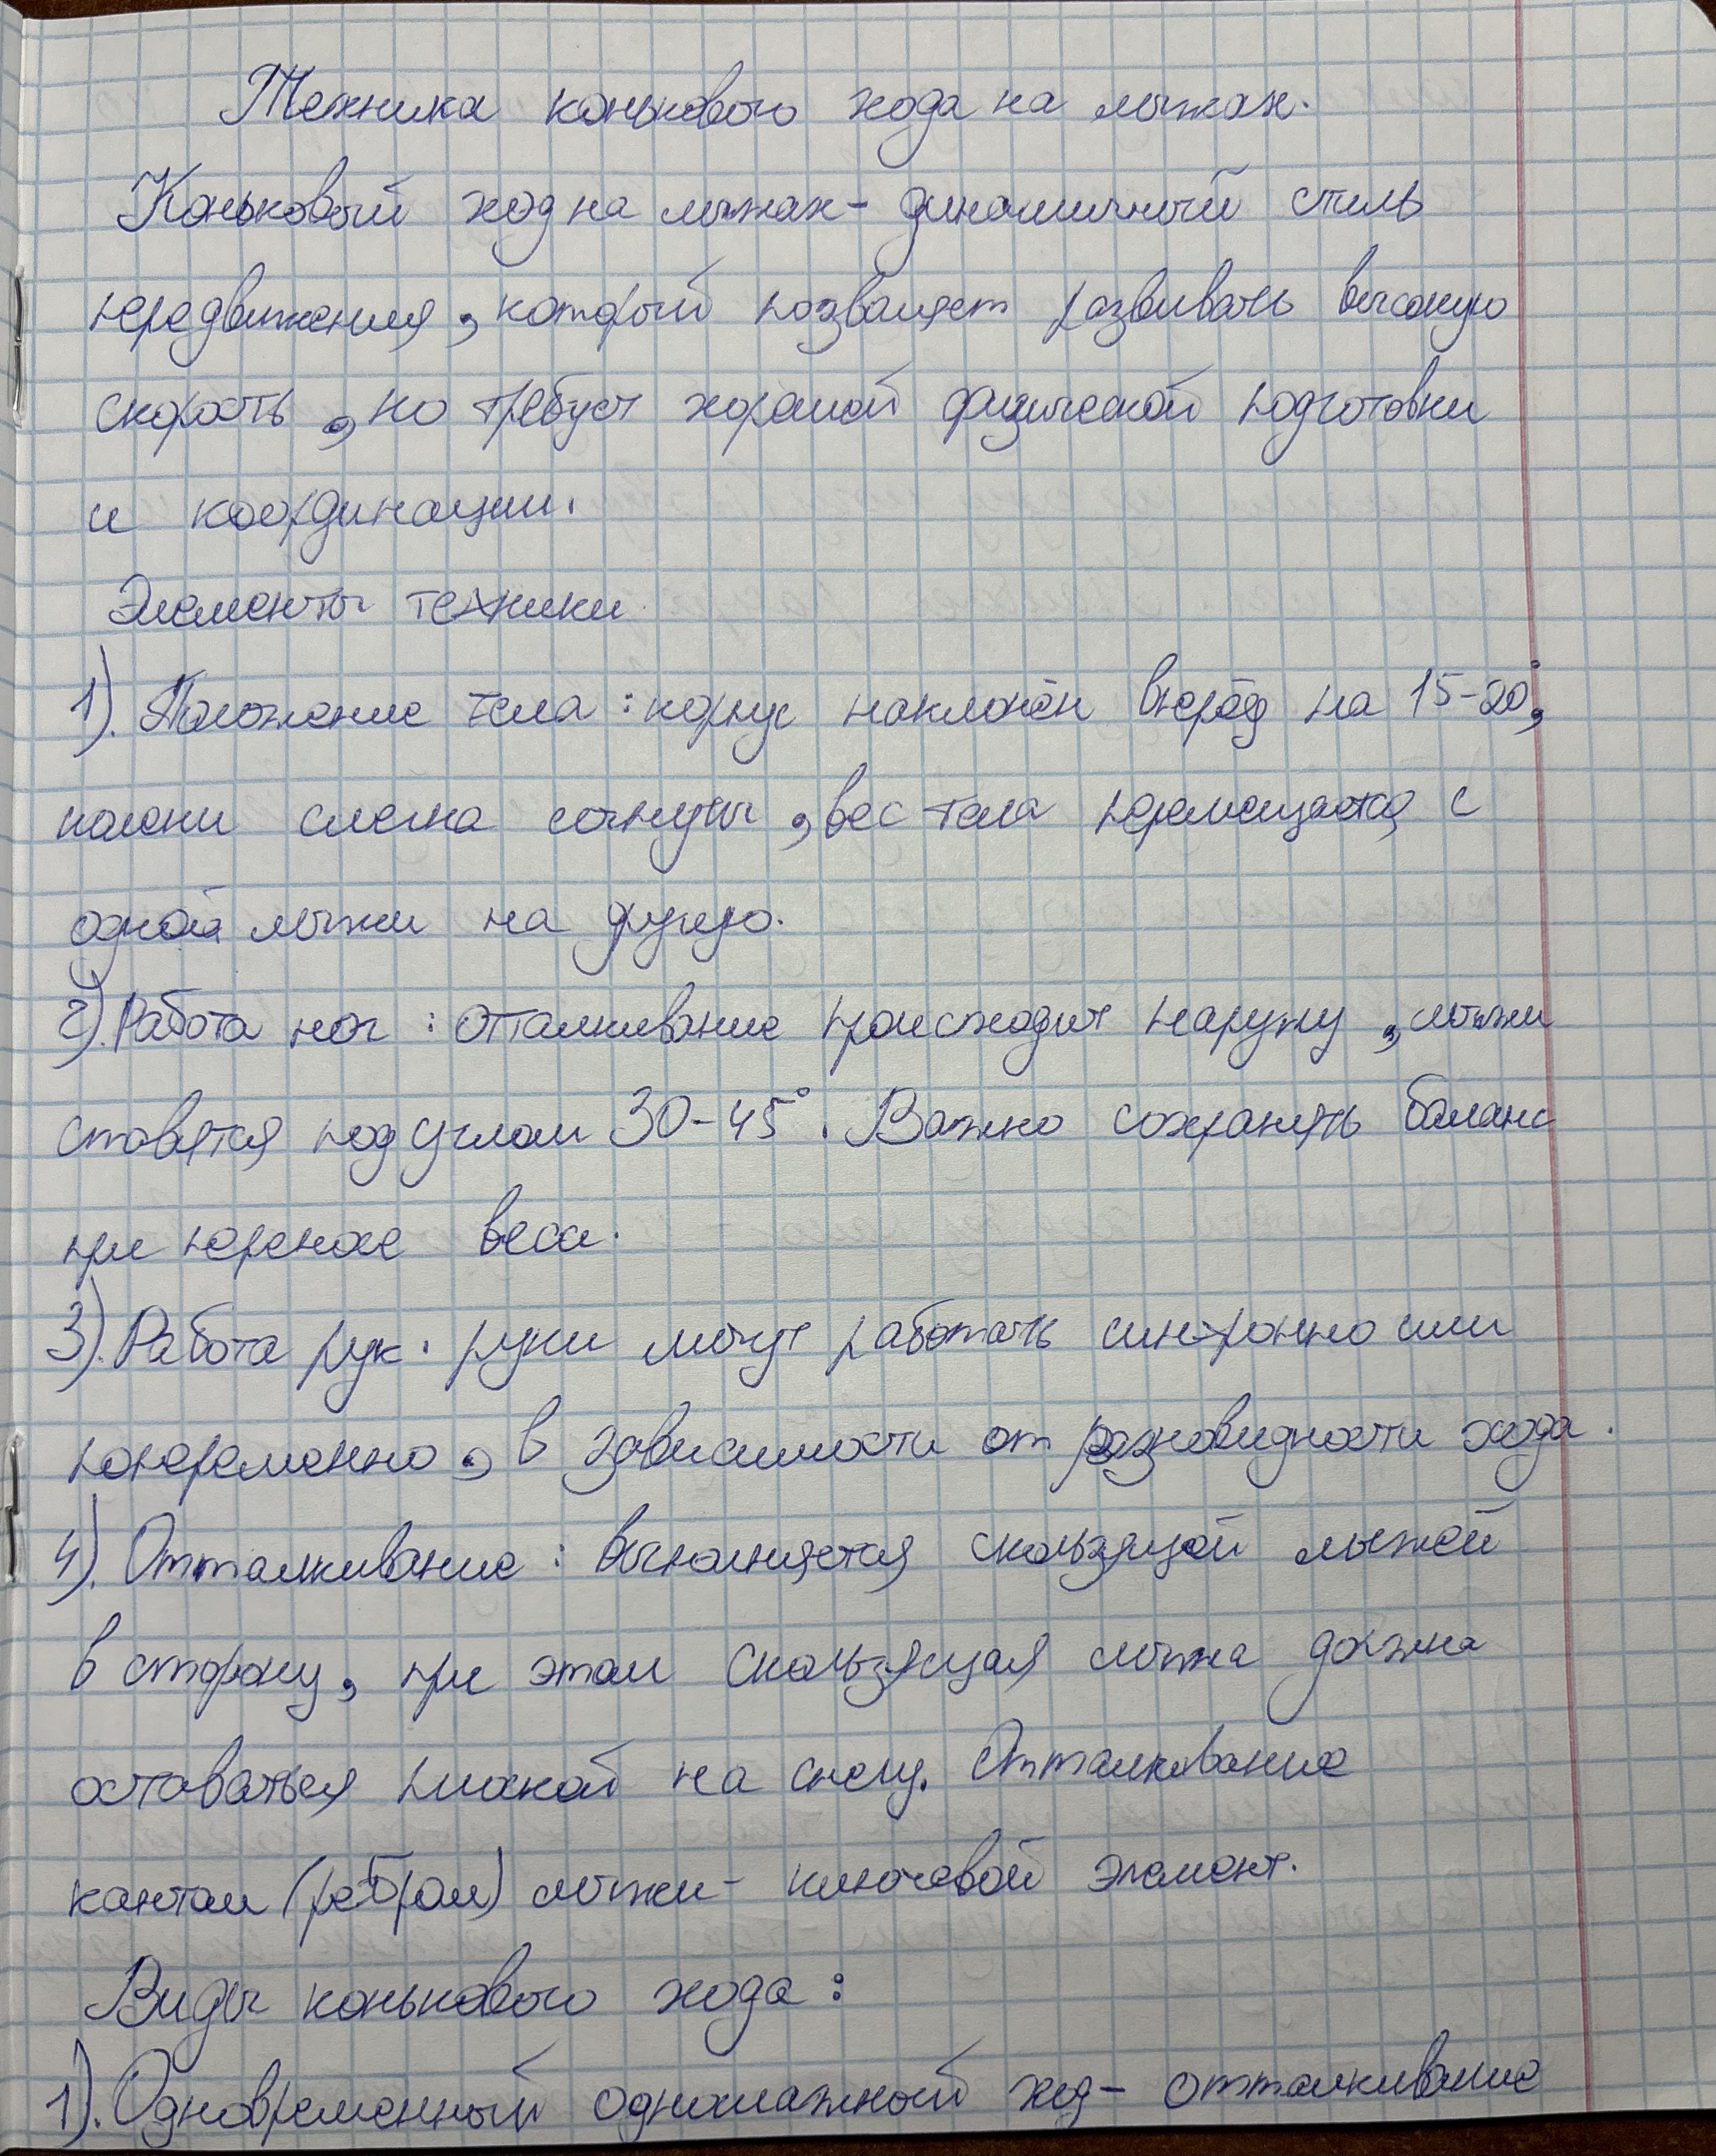 Техника конькового хода на лыжах.
Коньковый ход на лыжах - динамичный стиль
передвижения, который позволяет развивать высокую
скорость, но требует хорошей физической подготовки
и координации.
Элементы техники
1). Положение тела: корпус наклонён вперёд на 15-20°,
колени слегка согнуты, вес тела перемещается с
одной лыжи на другую.
2). Работа ног: отталкивание происходит наружу, лыжи
ставятся под углом 30-45°. Важно сохранять баланс
при переносе веса.
3). Работа рук. руки могут работать синхронно или
попеременно, в зависимости от разновидности хода.
4). Отталкивание: выполняется скользящей лыжей
в сторону, при этом скользящая лыжа должна
оставаться плоской на снегу. Отталкивание
кантом (ребром) лыжи - ключевой элемент.
Виды конькового хода:
1). Одновременный одношажный ход - отталкивание